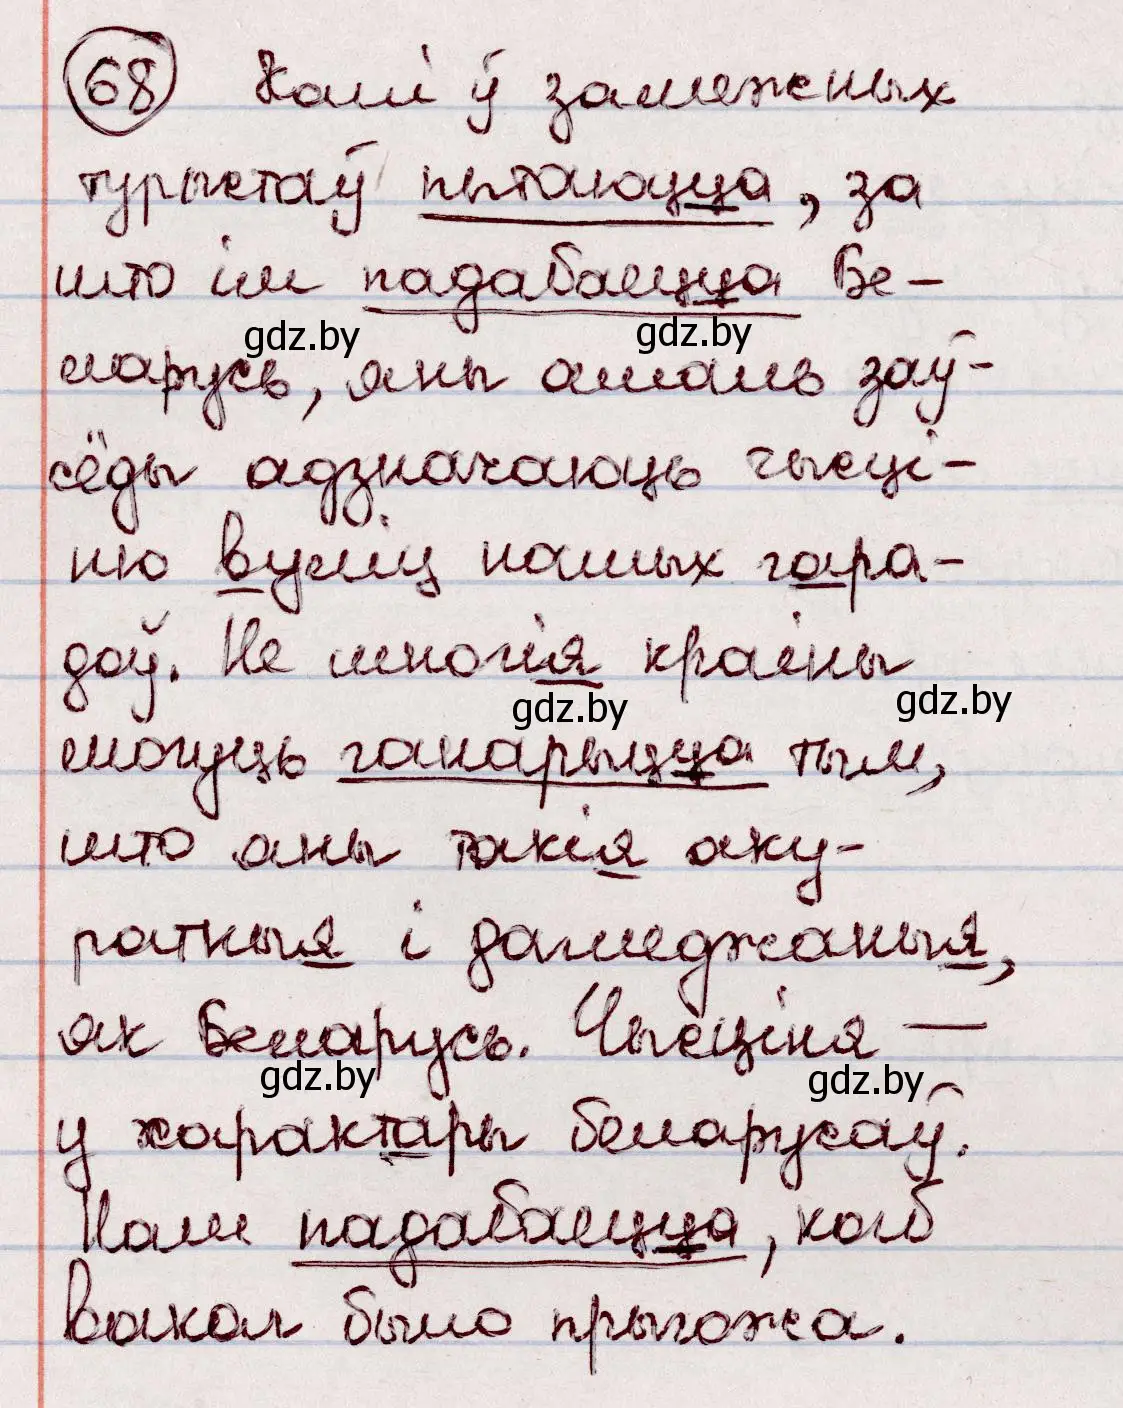 68 Калі ў замежных
турыстаў пытаюцца, за
што ім падабаецца Бе-
gdz.by gdz.by
ларусь, яны амаль заў-
сёды адзначаюць чысці-
ню вуліц нашых гара-
доў. Не многія краіны
gdz.by gdz.by
могуць ганарыцца тым,
што яны такія аку-
ратныя і дагледжаныя,
як Беларусь. Чысціня —
gdz.by gdz.by
у характары беларусаў.
Нам падабаецца, каб
вакол было прыгожа.